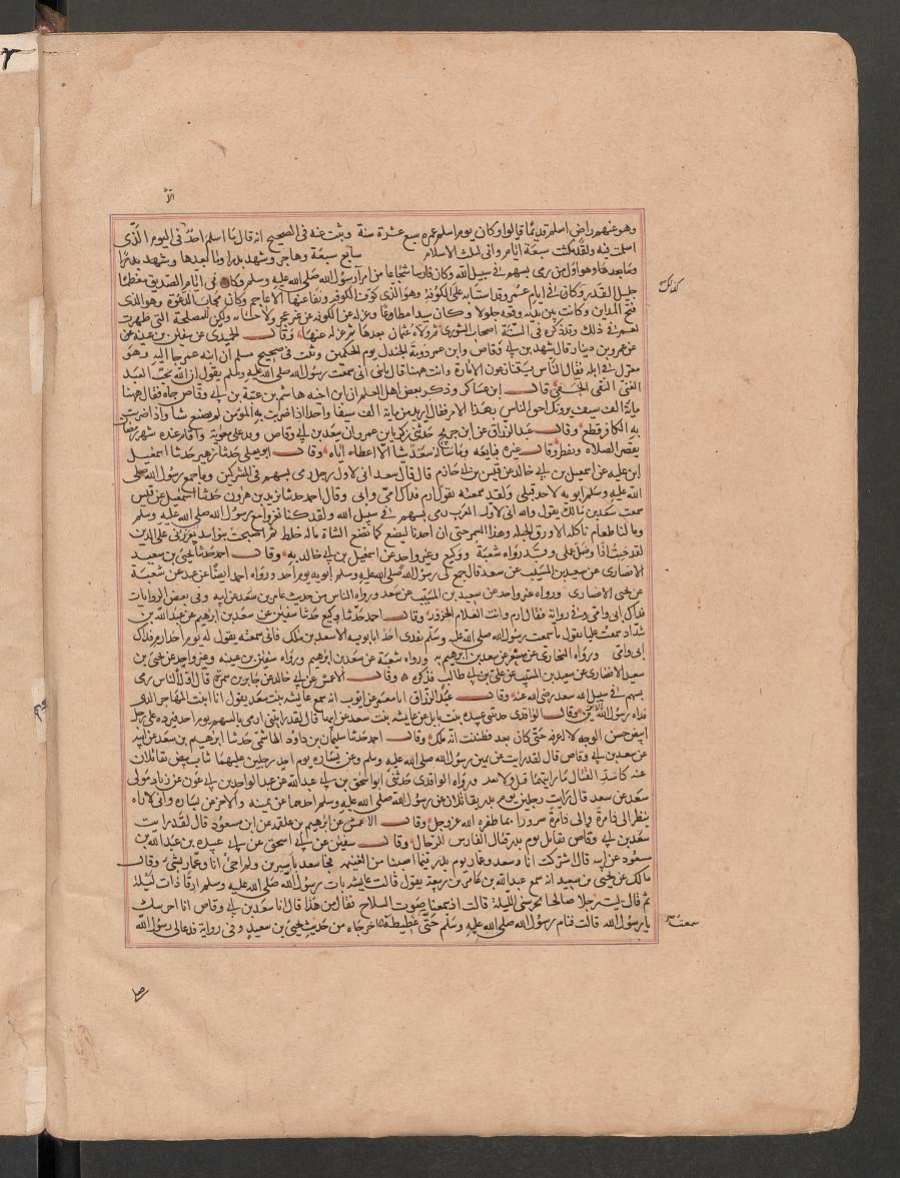 الا
وهو عنهم راض اسلم قديما قالوا وكان يوم اسلم عمره سبع عشرة سنة وثبت عنه في الصحيح انه قال ما اسلم احد في اليوم الذي
اسلمت فيه ولقد مكثت سبعة ايام واني لثلث الاسلام سابع سبعة وهاجر وشهد بدرا وما بعدها وشهد بدرا
وما بعدها وهو اول من رمى بسهم في سبيل الله وكان فارسا شجاعا من امرآ رسول الله صلى الله عليه وسلم وكان في ايام الصديق معظما
جليل القدر وكان في ايام عمر وقد استنابه على الكوفة وهو الذي كوف الكوفة ونفا عنها الاعاجم وكان مجاب الدعوة وهو الذي
فتح المداين وكانت بين يديه وقعة جلولا وكان سيدا مطاوعا وعزله عن الكوفة عن غير عجز ولا خيانة ولكن لمصلحة التي ظهرت
لعمر في ذلك وقد ذكره في الستة اصحاب الشورى ثم ولاه عثمان بعدها ثم عزله عنها وقال الحميدي عن سفين بن عيينه عن
عن عمرو بن دينار قال شهد بن ابي وقاص وابن عمر دومة الجندل يوم الحكمين وثبت في صحيح مسلم ان ابنه عمر جا اليه وهو
معتزل في ابله فقال الناس يتنازعون الامارة وانت ههنا قال يابني اني سمعت رسول الله صلى الله عليه وسلم يقول ان الله يحب العبد
الغني التقي الخفي قال ابن عساكر وذكر بعض اهل العلم ان ابن اخيه هاشم بن عتبة بن ابي وقاص جاه فقال ههنا
ماية الف سيف يرونك احق الناس بهذا الامر فقال اريد من ماية الف سيفا واحدا اذا ضربت به المؤمن لم يصنع شيا واذا ضربت
به الكافر قطع وقال عبد الرزاق عن ابن جريج حدثني زكريا بن عمرو ان سعد بن ابي وقاص وفد على معوية واقام عنده شهر رمضان
يقصر الصلاة ويفطر وقال غيره فبايعه وما ساله سعد شيا الا اعطاه اياه وقال ابو يعلى حدثنا زهير حدثنا اسمعيل
ابن عليه عن اسمعيل بن ابي خالد عن قيس بن ابي حازم قال قال سعد اني لاول رجل رمى بسهم في المشركين وما جمع رسول الله صلى
الله عليه وسلم ابويه لاحد قبلي ولقد سمعته يقول ارم فداك امي وابي وقال احمد حدثنا يزيد بن هرون حدثنا اسمعيل عن قيس
سمعت سعد بن مالك يقول والله اني لاول العرب رمى بسهم في سبيل الله ولقد كنا نغزوا مع رسول الله صلى الله عليه وسلم
وما لنا طعام ناكله الا ورق الحبلة وهذا السمر حتى ان احدنا ليضع كما تضع الشاة ماله خلط ثم اصبحت بنو اسد يعزرني على الدين
لقد خبت اذا وضل عملي وقد رواه شعبة ووكيع وغير واحد عن اسمعيل بن ابي خالد به وقال احمد حدثنا يحيى بن سعيد
الانصاري عن سعيد بن المسيب عن سعد قال جمع لي رسول الله صلى الله عليه وسلم ابويه يوم احد ورواه احمد ايضا عن عند عن شعبة
عن يحيى الانصاري ورواه غير واحد عن سعيد بن المسيب عن سعد ورواه الناس من حديث عامر بن سعد عن ابيه وفي بعض الروايات
فداك ابي وامي وفي رواية فقال ارم وانت الغلام الحزور وقال احمد حدثنا وكيع حدثنا سفين عن سعد بن ابرهيم عن عبد الله بن
شداد سمعت عليا يقول ما سمعت رسول الله صلى الله عليه وسلم يفدي احدا بابويه الا سعد بن ملك فاني سمعته يقول له يوم احد ارم فداك
ابي وامي ورواه البخاري عن مسعر عن سعد بن ابرهيم به ورواه شعبة عن سعد بن ابرهيم ورواه سفين بن عيينه وغير واحد عن يحيى بن
سعيد الانصاري عن سعيد بن المسيب عن علي بن ابي طالب فذكره وقال الاعمش عن ابي خالد عن جابر بن سمرة قال اول الناس رمى
بسهم في سبيل الله سعد رضي الله عنه وقال عبد الرزاق انا معمر عن ايوب انه سمع عايشه بنت سعد يقول انا ابنت المهاجر الذي
فداه رسول الله بالابوين وقال الواقدي حدثني عبيده بنت نابل عن عايشه بنت سعد عن ابيها قال لقد رايتني ارمي بالسهم يوم احد فيرده على رجل
ابيض حسن الوجه لا اعرفه حتى كان بعد فظننت انه ملك وقال احمد حدثنا سليمان بن داود الهاشمي حدثنا ابرهيم بن سعد عن ابيه
عن سعد بن ابي وقاص قال لقد رايت عن يمين رسول الله صلى الله عليه وسلم وعن يساره يوم احد رجلين عليهما ثياب بيض يقاتلان
عنه كاشد القتال ما رايتهما قبل ولا بعد ورواه الواقدي حدثني ابو اسحق بن ابي عبد الله عن عبد الواحد بن ابي عون عن زياد مولى
سعد عن سعد قال رايت رجلين يوم بدر يقاتلان عن رسول الله صلى الله عليه وسلم احدهما عن يمينه والاخر عن يساره واني لاراه
ينظر الى ذا مرة والى ذا مرة سرورا بما ظفره الله عز وجل وقال الاعمش عن ابرهيم بن علقمه عن ابن مسعود قال لقد رايت
سعد بن ابي وقاص يقاتل يوم بدر قتال الفارس للرجال وقال سفين عن ابي اسحق عن ابي عبيده بن عبد الله بن
مسعود عن ابيه قال اشتركت انا وسعد وعمار يوم بدر فيما اصبنا من الغنيمه فجا سعد باسيرين ولم اجئ انا وعمار بشئ وقال
مالك عن يحيى بن سعيد انه سمع عبد الله بن عامر بن ربيعة يقول قالت عايشه بات رسول الله صلى الله عليه وسلم ارقا ذات ليلة
ثم قال ليت رجلا صالحا يحرسني الليلة قالت اذ سمعنا صوت السلاح فقال من هذا قال انا سعد بن ابي وقاص انا احرسك
يا رسول الله قالت فنام رسول الله صلى الله عليه وسلم حتى غطيطه اخرجاه من حديث يحيى بن سعيد وفي رواية فدعا لي رسول الله
كذلك
سمعت